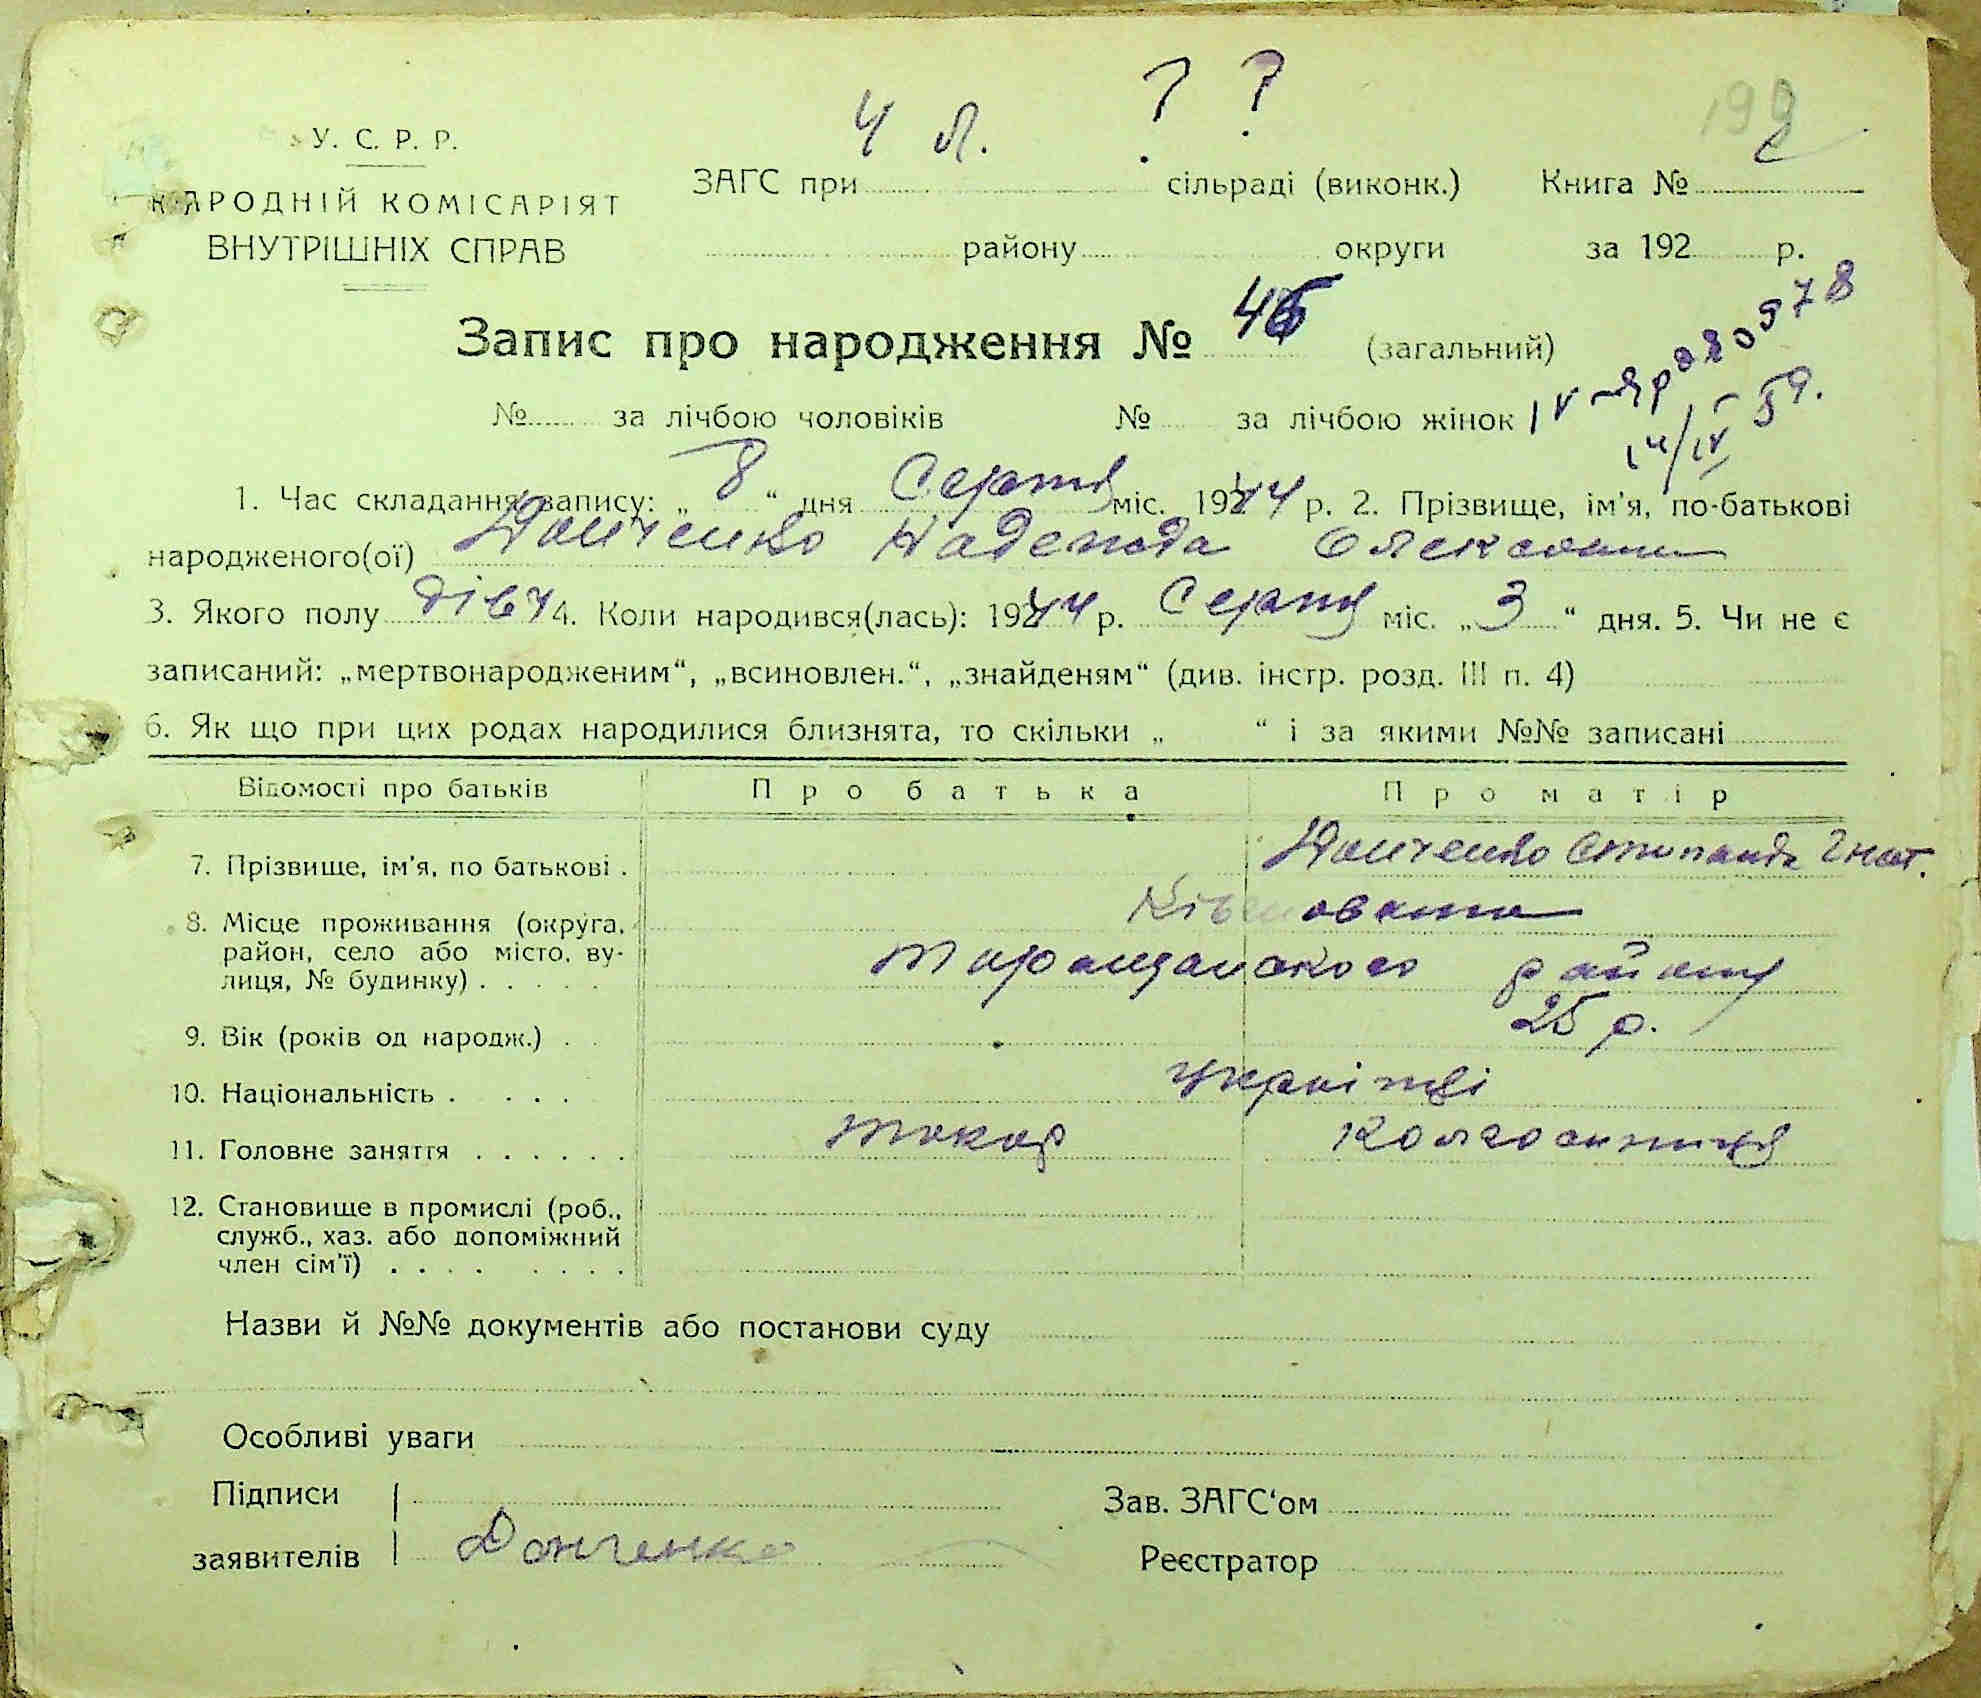 4 л. ? ? 192
У. С. Р. Р.
НАРОДНІЙ КОМІСАРІЯТ
ВНУТРІШНІХ СПРАВ
ЗАГС при сільраді (виконк.) Книга №
району округи за 192 р.
Запис про народження № 46 (загальний)
№ за лічбою чоловіків № за лічбою жінок
14/IV 59.
1. Час складання запису: „ 8 “ дня Серпня міс. 1944 р. 2. Прізвище, ім'я, по-батькові
народженого(ої) Донченко Надежда Олександ
3. Якого полу дівч 4. Коли народився(лась): 1944 р. Серпня міс. „ 3 “ дня. 5. Чи не є
записаний: „мертвонародженим“, „всиновлен.“, „знайденям“ (див. інстр. розд. III п. 4)
6. Як що при цих родах народилися близнята, то скільки „ “ і за якими №№ записані
Відомості про батьків Про батька Про матір
7. Прізвище, ім'я, по батькові . Донченко Степанида Гнат.
8. Місце проживання (округа, район, село або місто, вулиця, № будинку) . . . . .
Таращанского району
9. Вік (років од народж.) . . 25 р.
10. Національність . . . . . українці
11. Головне заняття . . . . . . токар колгоспниця
12. Становище в промислі (роб.,
служб., хаз. або допоміжний
член сім'ї) . . . . . . . .
Назви й №№ документів або постанови суду
Особливі уваги
Підписи Зав. ЗАГС'ом
заявителів Донченко Реєстратор